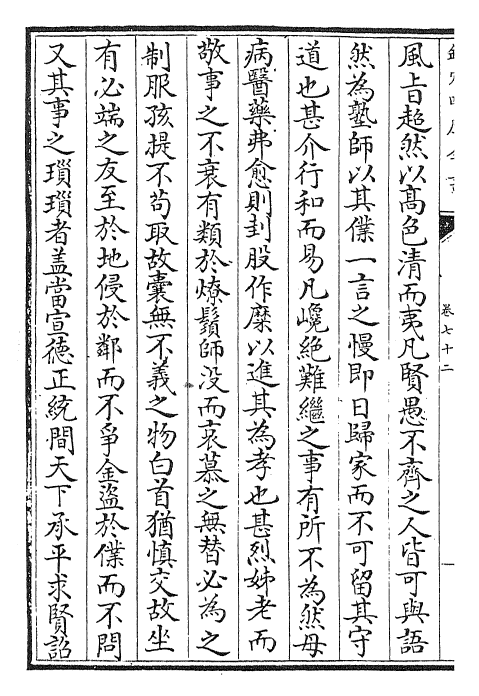 卷七十二
風旨超然以髙色清而夷凡賢愚不齊之人皆可與語
然為塾師以其僕一言之慢即日歸家而不可留其守
道也甚介行和而易凡巉絶難繼之事有所不為然母
病醫藥弗愈則刲股作糜以進其為孝也甚烈姊老而
敬事之不衰有類於燎鬚師没而哀慕之無替必為之
制服孩提不茍取故囊無不義之物白首猶慎交故坐
有必端之友至於地侵於鄰而不爭金盜於僕而不問
又其事之瑣瑣者盖當宣徳正統間天下承平求賢詔